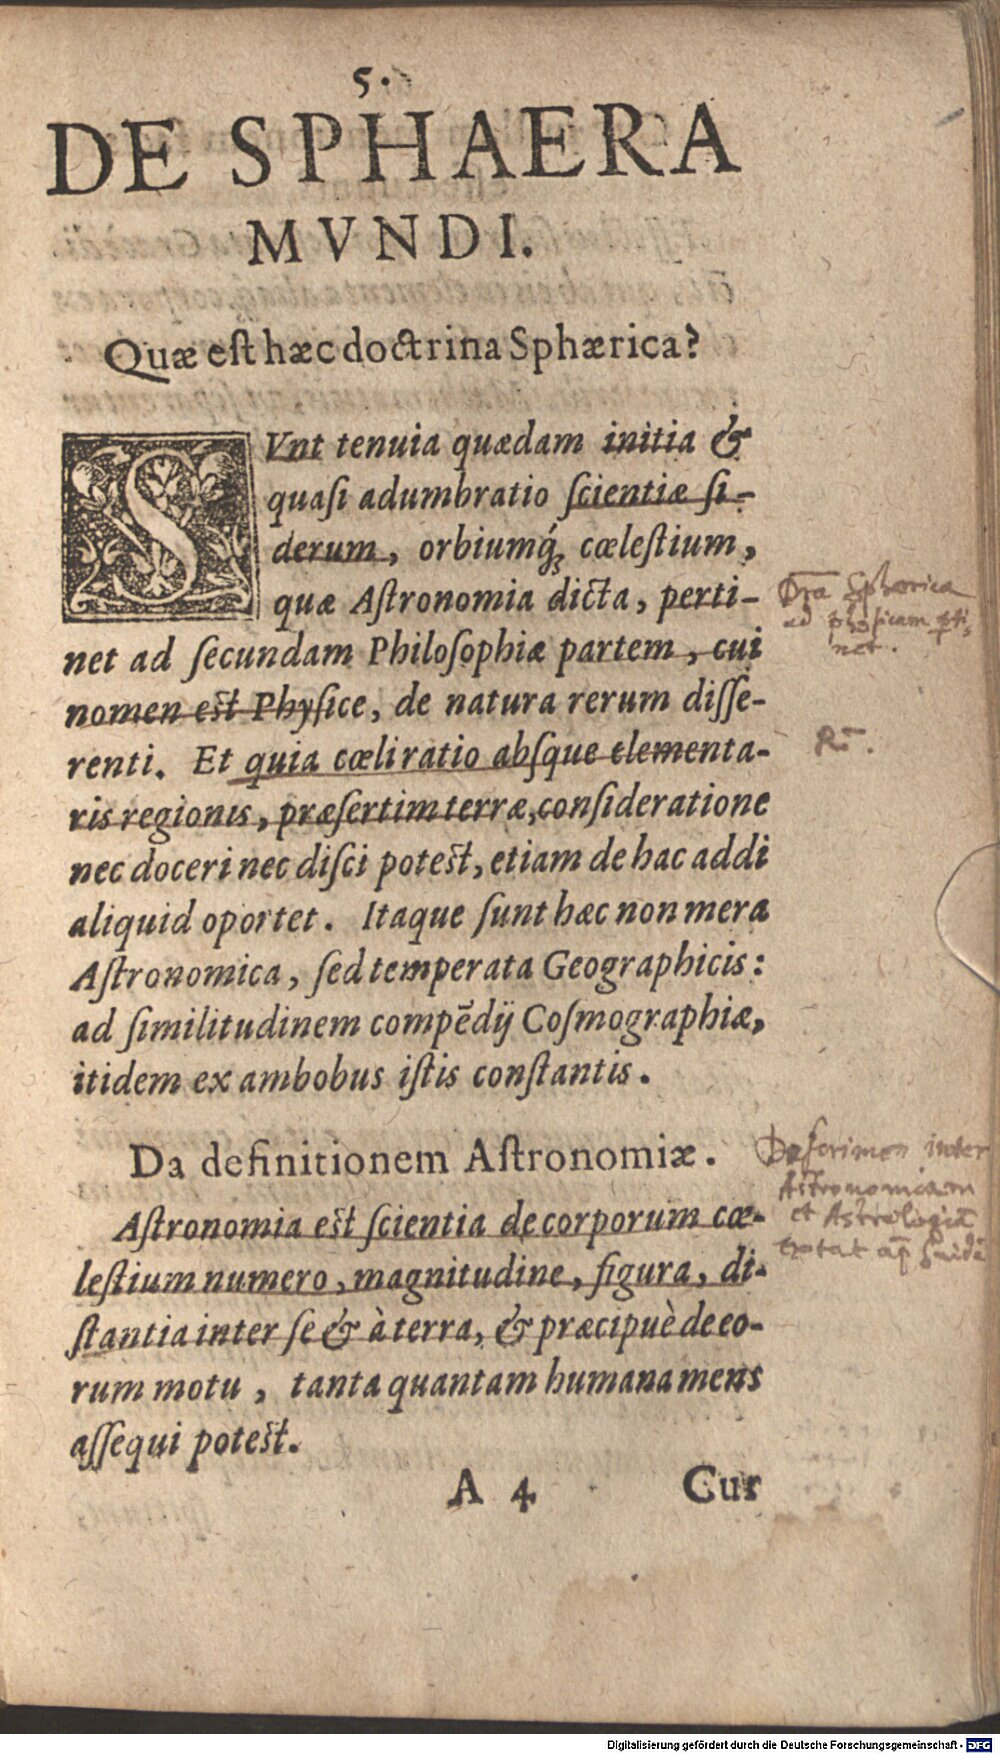 5.
DE SPHAERA
MVNDI.
Quæ est hæc doctrina Sphærica?
SVnt tenuia quædam initia &
quasi adumbratio scientiæ si-
derum, orbiumq́ꝫ cœlestium,
quæ Astronomia dicta, perti-
net ad secundam Philosophiæ partem, cui
nomen est Physice, de natura rerum disse-
renti. Et quia cœli ratio absque elementa-
ris regionis, præsertim terræ, consideratione
nec doceri nec disci potest, etiam de hac addi
aliquid oportet. Itaque sunt hæc non mera
Astronomica, sed temperata Geographicis:
ad similitudinem compēdij Cosmographiæ,
itidem ex ambobus istis constantis.
Sphærica
ad physicam
net.
Da definitionem Astronomiæ.
Astronomia est scientia de corporum cœ-
lestium numero, magnitudine, figura, di-
stantia inter se & à terra, & præcipuè de eo-
rum motu, tanta quantam humana mens
assequi potest.
inter
Astronomiam
et Astrologiā
A 4 Cur
Digitalisierung gefördert durch die Deutsche Forschungsgemeinschaft - DFG